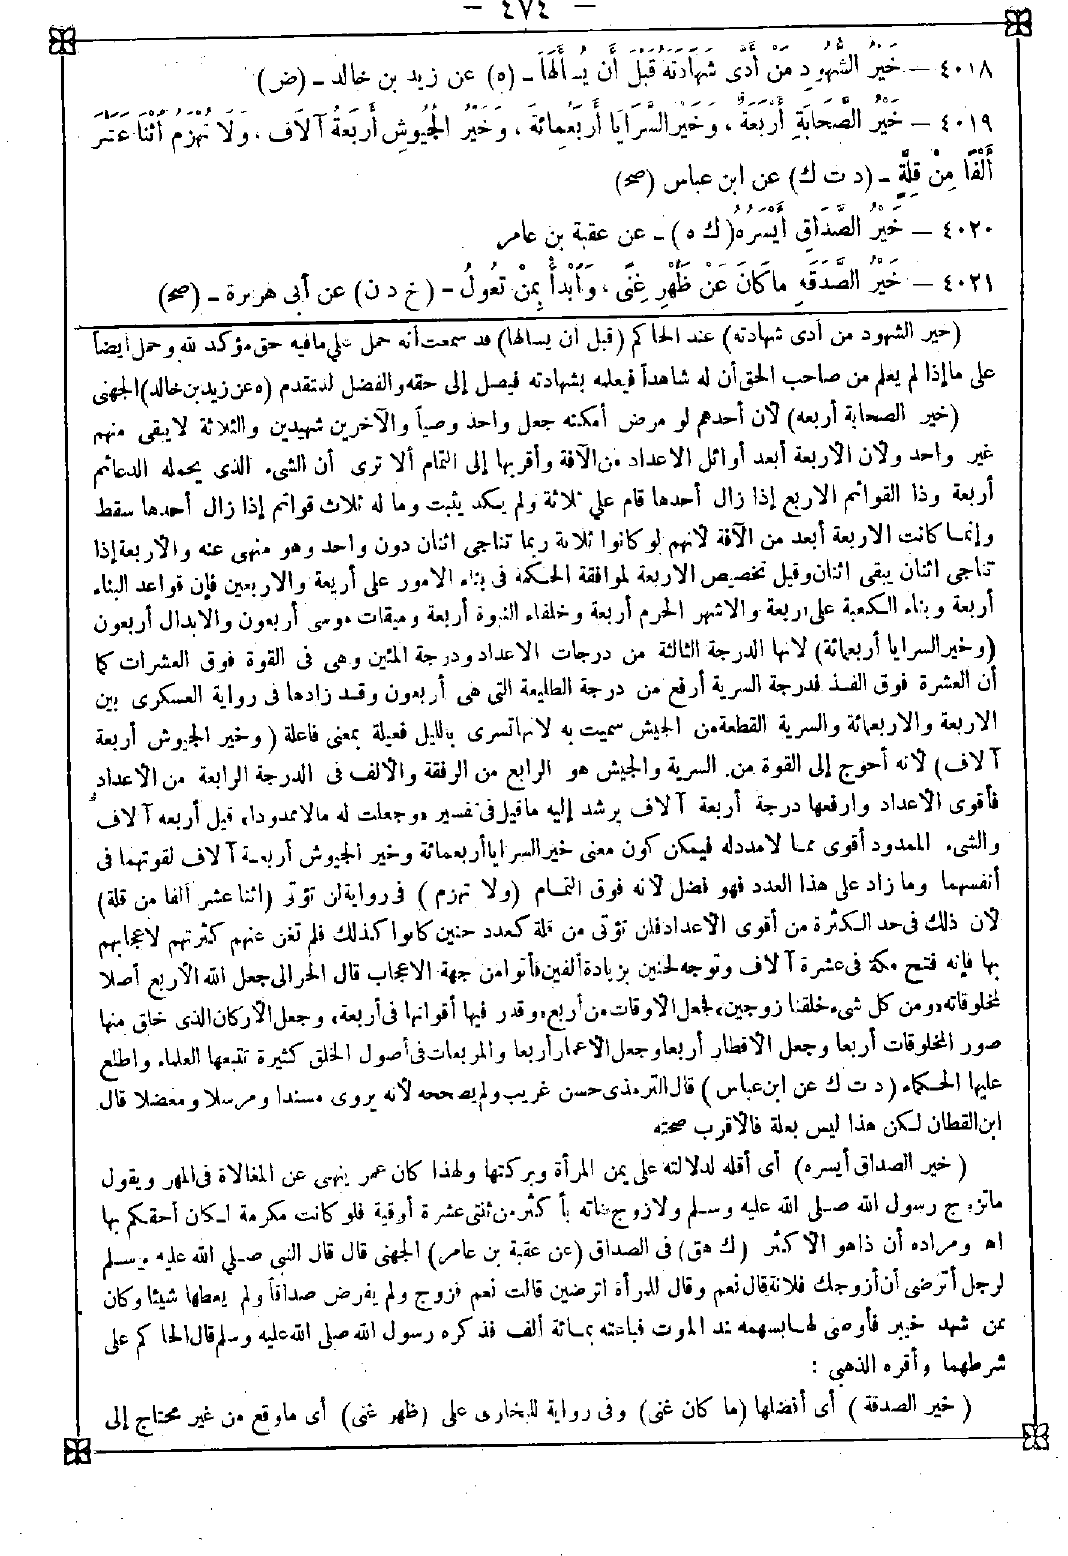 — ٤٧٤ —
٤٠١٨ — خَيْرُ الشُّهُودِ مَنْ أَدَّى شَهَادَتَهُ قَبْلَ أَنْ يُسْأَلَهَا — (ه) عن زيد بن خالد — (ض)
٤٠١٩ — خَيْرُ الصَّحَابَةِ أَرْبَعَةٌ ، وَخَيْرُ السَّرَايَا أَرْبَعُمِائَةَ ، وَخَيْرُ الجُيُوشِ أَرْبَعَةُ آلَاف ، وَلَا تُهْزَمُ اثْنَا عَشَرَ
أَلْفًا مِنْ قِلَّةٍ — (د ت ك) عن ابن عباس (صح)
٤٠٢٠ — خَيْرُ الصَّدَاقِ أَيْسَرُهُ (ك ه) — عن عقبة بن عامر
٤٠٢١ — خَيْرُ الصَّدَقَةِ ما كَانَ عَنْ ظَهْرِ غِنًى ، وَابْدَأْ بِمَنْ تَعُولُ — (خ د ن) عن أبى هريرة — (صح)
(خير الشهود من أدى شهادته) عند الحاكم (قبل أن يسألها) قد سمعت أنه حمل على مافيه حق مؤكد لله وحمل أيضاً
على ما إذا لم يعلم من صاحب الحق أن له شاهداً فيعلمه بشهادته فيصل إلى حقه والفضل للمتقدم (ه عن زيد بن خالد) الجهنى
(خير الصحابة أربعه) لأن أحدهم لو مرض أمكنه جعل واحد وصياً والآخرين شهيدين والثلاثة لايبقى منهم
غير واحد ولأن الاربعة أبعد أوائل الاعداد من الآفة وأقربها إلى التمام ألا ترى أن الشىء الذى يحمله الدعائم
أربعة وذا القوائم الاربع إذا زال أحدها قام على ثلاثة ولم يكد يثبت وما له ثلاث قوائم إذا زال أحدها سقط
وإنما كانت الاربعة أبعد من الآفة لأنهم لو كانوا ثلاثة ربما تناجى اثنان دون واحد وهو منهى عنه والاربعة إذا
تناجى اثنان يبقى اثنان وقيل تخصيص الاربعة لموافقة الحكمة فى بناء الامور على أربعة والاربعين فإن قواعد البناء
أربعة وبناء الكعبة على اربعة والاشهر الحرم أربعة وخلفاء النبوة أربعة وميقات موسى أربعون والابدال أربعون
(وخير السرايا أربعمائة) لانها الدرجة الثالثة من درجات الاعداد ودرجة المئين وهى فى القوة فوق العشرات كما
أن العشرة فوق الفذ فدرجة السرية أرفع من درجة الطليعة التى هى أربعون وقد زادها فى رواية العسكرى بين
الاربعة والاربعمائة والسرية القطعة من الجيش سميت به لانها تسرى بالليل فعيلة بمعنى فاعلة (وخير الجيوش أربعة
آلاف) لأنه أحوج إلى القوة من السرية والجيش هو الرابع من الرفقة والألف فى الدرجة الرابعة من الأعداد
فأقوى الأعداد وارفعها درجة أربعة آلاف يرشد إليه ماقيل فى تفسير «وجعلت له مالا ممدودا» قيل أربعه آلاف
والشىء الممدود أقوى مما لامدد له فيمكن كون معنى خير السرايا أربعمائة وخير الجيوش أربعة آلاف لقوتهما فى
أنفسهما وما زاد على هذا العدد فهو فضل لأنه فوق التمام (ولا تهزم) فى رواية لن تؤتى (اثنا عشر ألفا من قلة)
لأن ذلك فى حد الكثرة من أقوى الأعداد فلن تؤتى من قلة كعدد حنين كانوا كذلك فلم تغن عنهم كثرتهم لاعجابهم
بها فإنه فتح مكة فى عشرة آلاف وتوجه لحنين بزيادة ألفين فأتوا من جهة الاعجاب قال الحرالى جعل الله الأربع أصلا
لمخلوقاته «ومن كل شىء خلقنا زوجين» فجعل الأوقات من أربع «وقدر فيها أقواتها فى أربعة» وجعل الأركان الذى خلق منها
صور المخلوقات أربعا وجعل الأقطار أربعا وجعل الاعمار أربعا والمربعات فى أصول الخلق كثيرة تتبعها العلماء واطلع
عليها الحكماء (د ت ك عن ابن عباس) قال الترمذى حسن غريب ولم يصححه لأنه يروى مسندا ومرسلا ومعضلا قال
ابن القطان لكن هذا ليس بعلة فالأقرب صحته
(خير الصداق أيسره) أى أقله لدلالته على يمن المرأة وبركتها ولهذا كان عمر ينهى عن المغالاة فى المهر ويقول
ماتزوج رسول الله صلى الله عليه وسلم ولا زوج بناته بأكثر من ثنتى عشرة أوقية فلو كانت مكرمة لكان أحقكم بها
اه ومراده أن ذا هو الأكثر (ك هق) فى الصداق (عن عقبة بن عامر) الجهنى قال قال النبى صلى الله عليه وسلم
لرجل أترضى أن أزوجك فلانة قال نعم وقال للمرأة اترضين قالت نعم فزوج ولم يفرض صداقاً ولم يعطها شيئا وكان
ممن شهد خيبر فأوصى لها بسهمه عند الموت فباعته بمائة ألف فذكره رسول الله صلى الله عليه وسلم قال الحاكم على
شرطهما وأقره الذهبى :
(خير الصدقة) أى أفضلها (ما كان غنى) وفى رواية للبخارى على (ظهر غنى) أى ماوقع من غير محتاج إلى